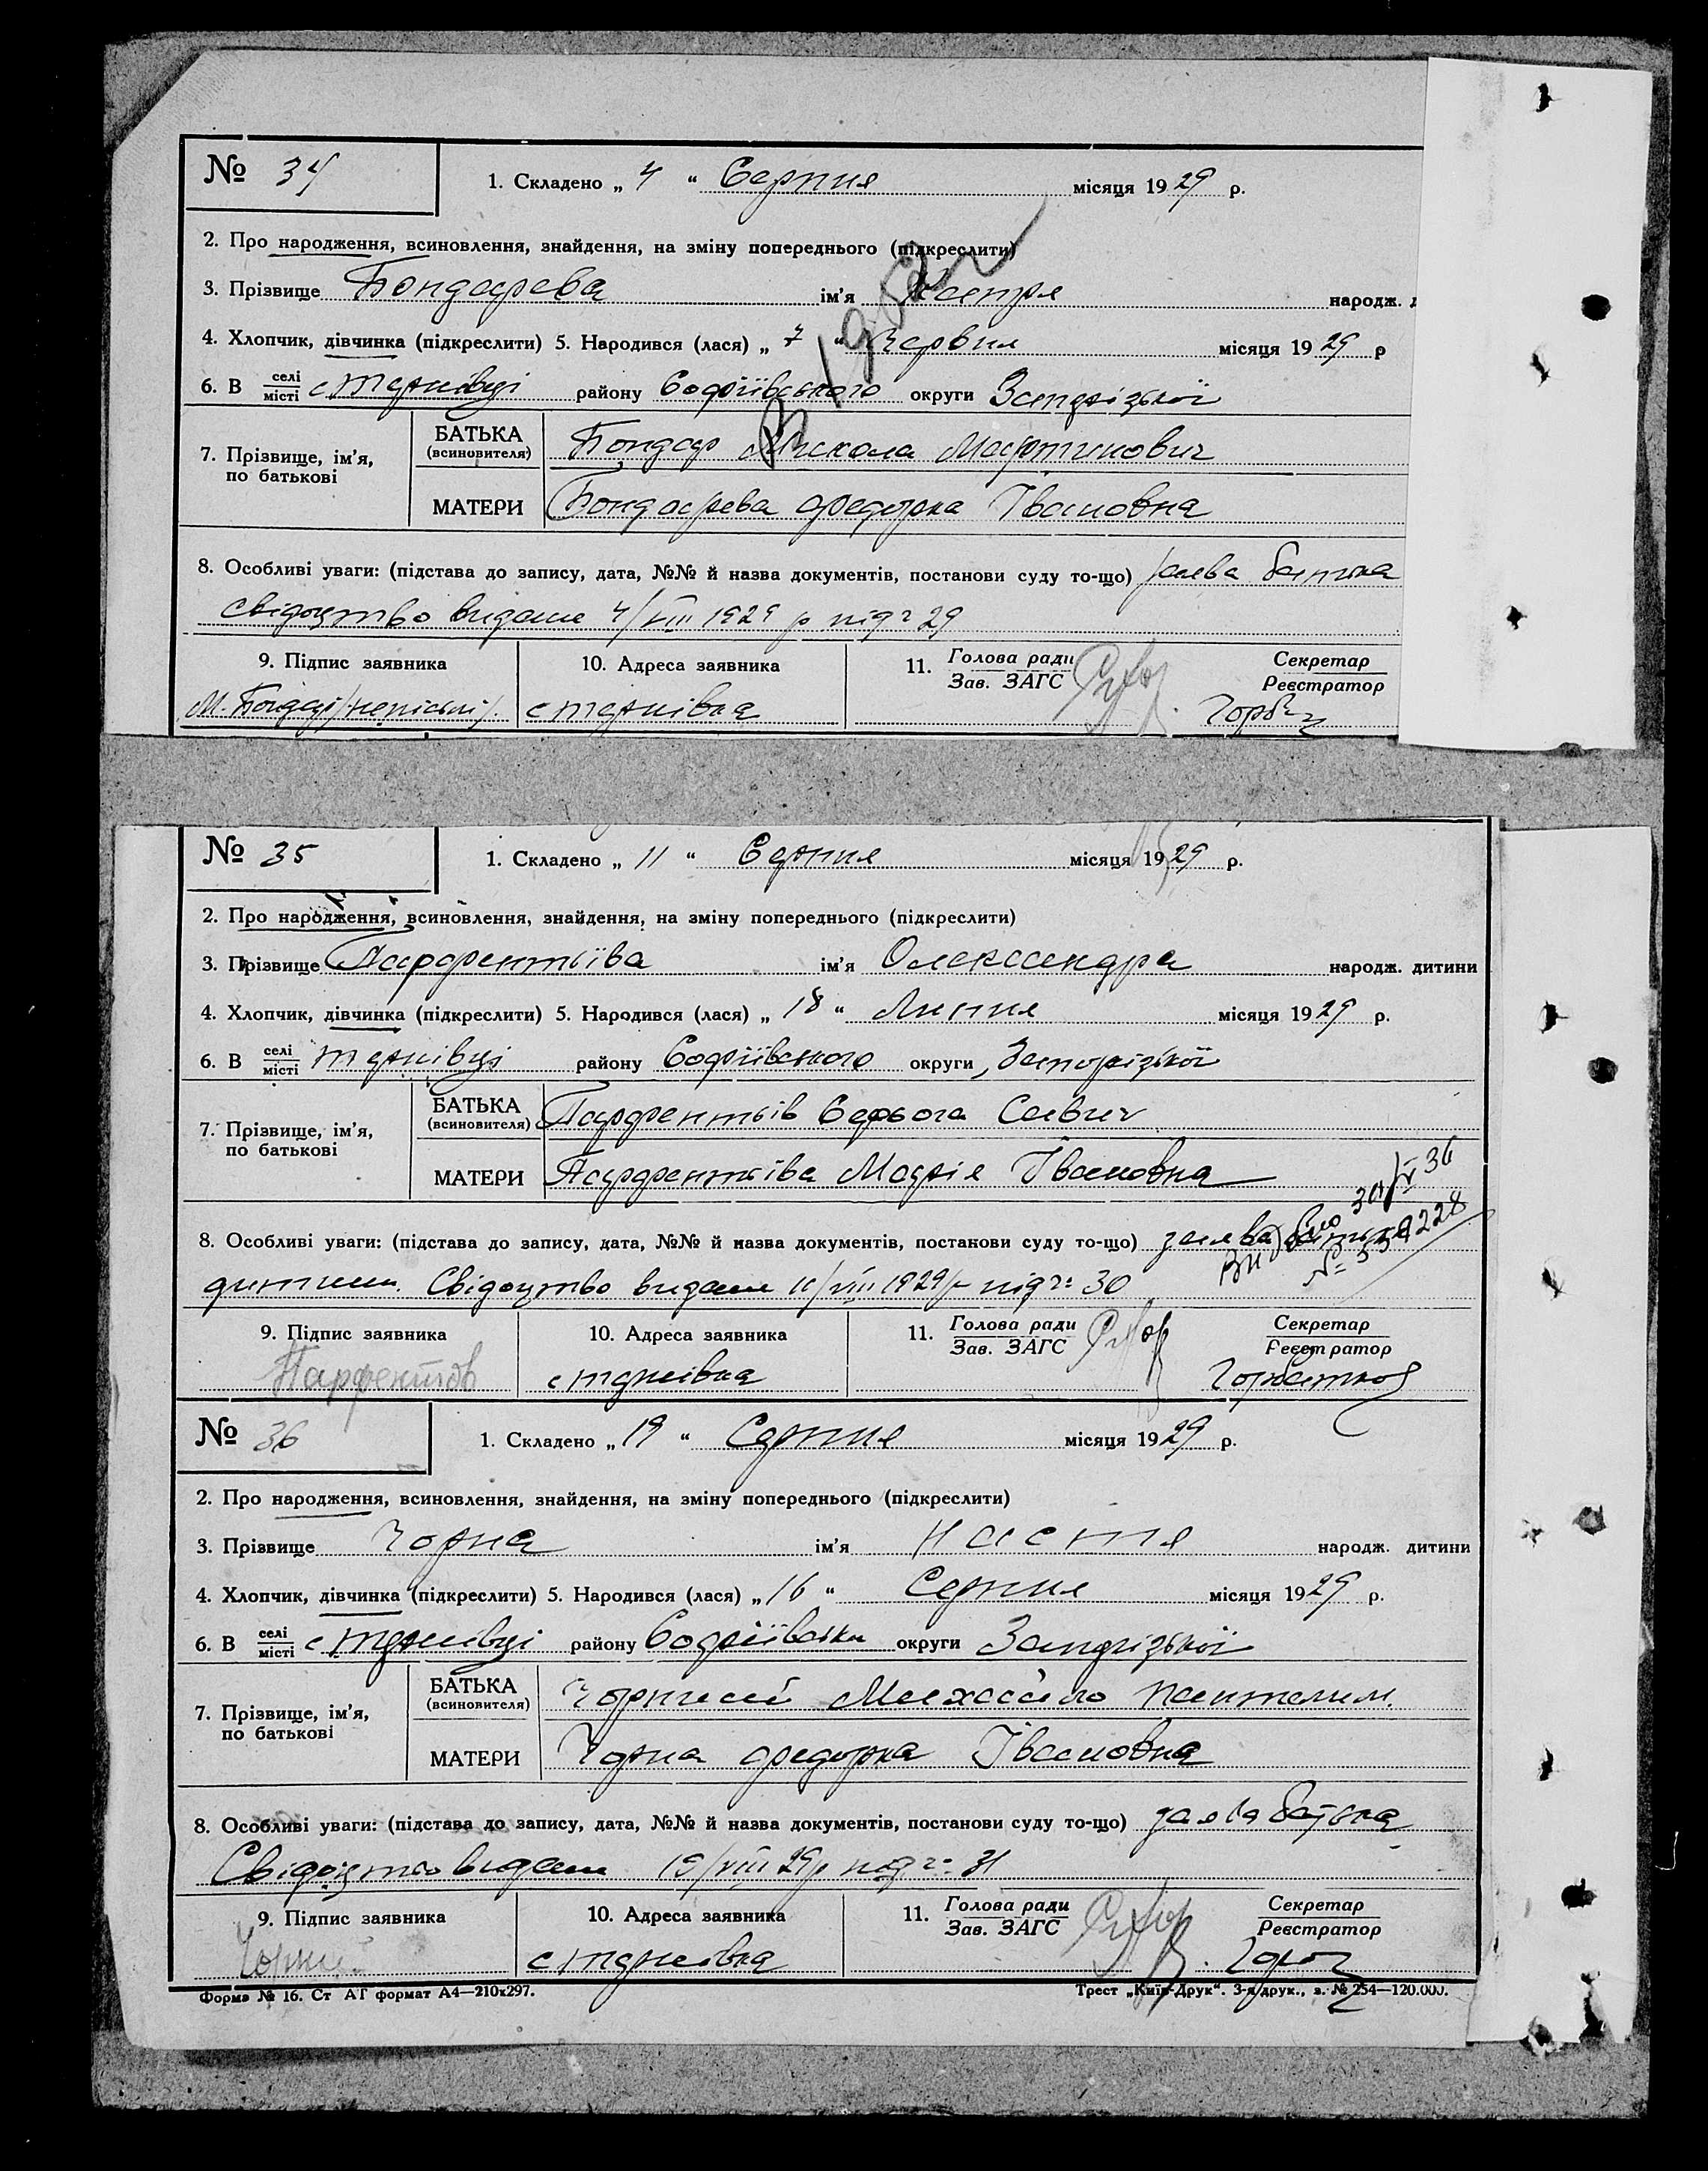 № 34
1. Складено „ 4 “ Серпня місяця 19 29 р.
2. Про народження, всиновлення, знайдення, на зміну попереднього (підкреслити)
3. Прізвище Бондарева ім'я народж.
4. Хлопчик, дівчинка (підкреслити) 5. Народився (лася) „ 7 “ Червня місяця 19 29 р
6. В селі місті с. району Софіївського округи Запорізької
7. Прізвище, ім'я, по батькові
БАТЬКА (всиновителя) Бондар Микола Мартинович
МАТЕРИ Бондарева Федорка Івановна
8. Особливі уваги: (підстава до запису, дата, №№ й назва документів, постанови суду то-що) заява батька
Свідоцтво видане 4/VIII 1929 р під № 29
9. Підпис заявника 10. Адреса заявника 11. Голова ради Зав. ЗАГС Секретар Реєстратор
М. Бондар
№ 35
1. Складено „ 11 “ Серпня місяця 19 29 р.
2. Про народження, всиновлення, знайдення, на зміну попереднього (підкреслити)
3. Прізвище Парфентьїва ім'я Олександра народж. дитини
4. Хлопчик, дівчинка (підкреслити) 5. Народився (лася) „ 18 “ Липня місяця 19 29 р.
6. В селі місті району Софіївського округи Запорізької
7. Прізвище, ім'я, по батькові
БАТЬКА (всиновителя) Парфентьїв Серьога Савич
МАТЕРИ Парфентьїва Марія Івановна
8. Особливі уваги: (підстава до запису, дата, №№ й назва документів, постанови суду то-що) заява батька
дитини. Свідоцтво видане 11/VIII 1929 р під № 30
9. Підпис заявника 10. Адреса заявника 11. Голова ради Зав. ЗАГС Секретар Реєстратор
№ 36
1. Складено „ 19 “ Серпня місяця 19 29 р.
2. Про народження, всиновлення, знайдення, на зміну попереднього (підкреслити)
3. Прізвище Чорна ім'я Настя народж. дитини
4. Хлопчик, дівчинка (підкреслити) 5. Народився (лася) „ 16 “ Серпня місяця 19 29 р.
6. В селі місті с. району округи Запорізької
7. Прізвище, ім'я, по батькові
БАТЬКА (всиновителя) Чорний Михайло Пантелим.
МАТЕРИ Чорна Федорка Івановна
8. Особливі уваги: (підстава до запису, дата, №№ й назва документів, постанови суду то-що) заява батька
Свідоцтво видане 19/VIII 29 р під № 31
9. Підпис заявника 10. Адреса заявника 11. Голова ради Зав. ЗАГС Секретар Реєстратор
Форма № 16. Ст АТ формат А4—210х297. Трест „Київ-Друк“. 3-я друк., з. № 254—120.000.